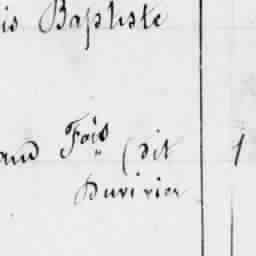 is Baptiste
and Fois (dit 1
Duvivier